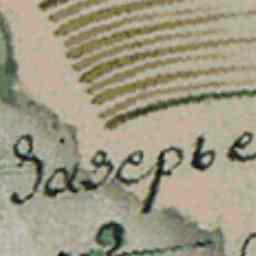 Зазерье